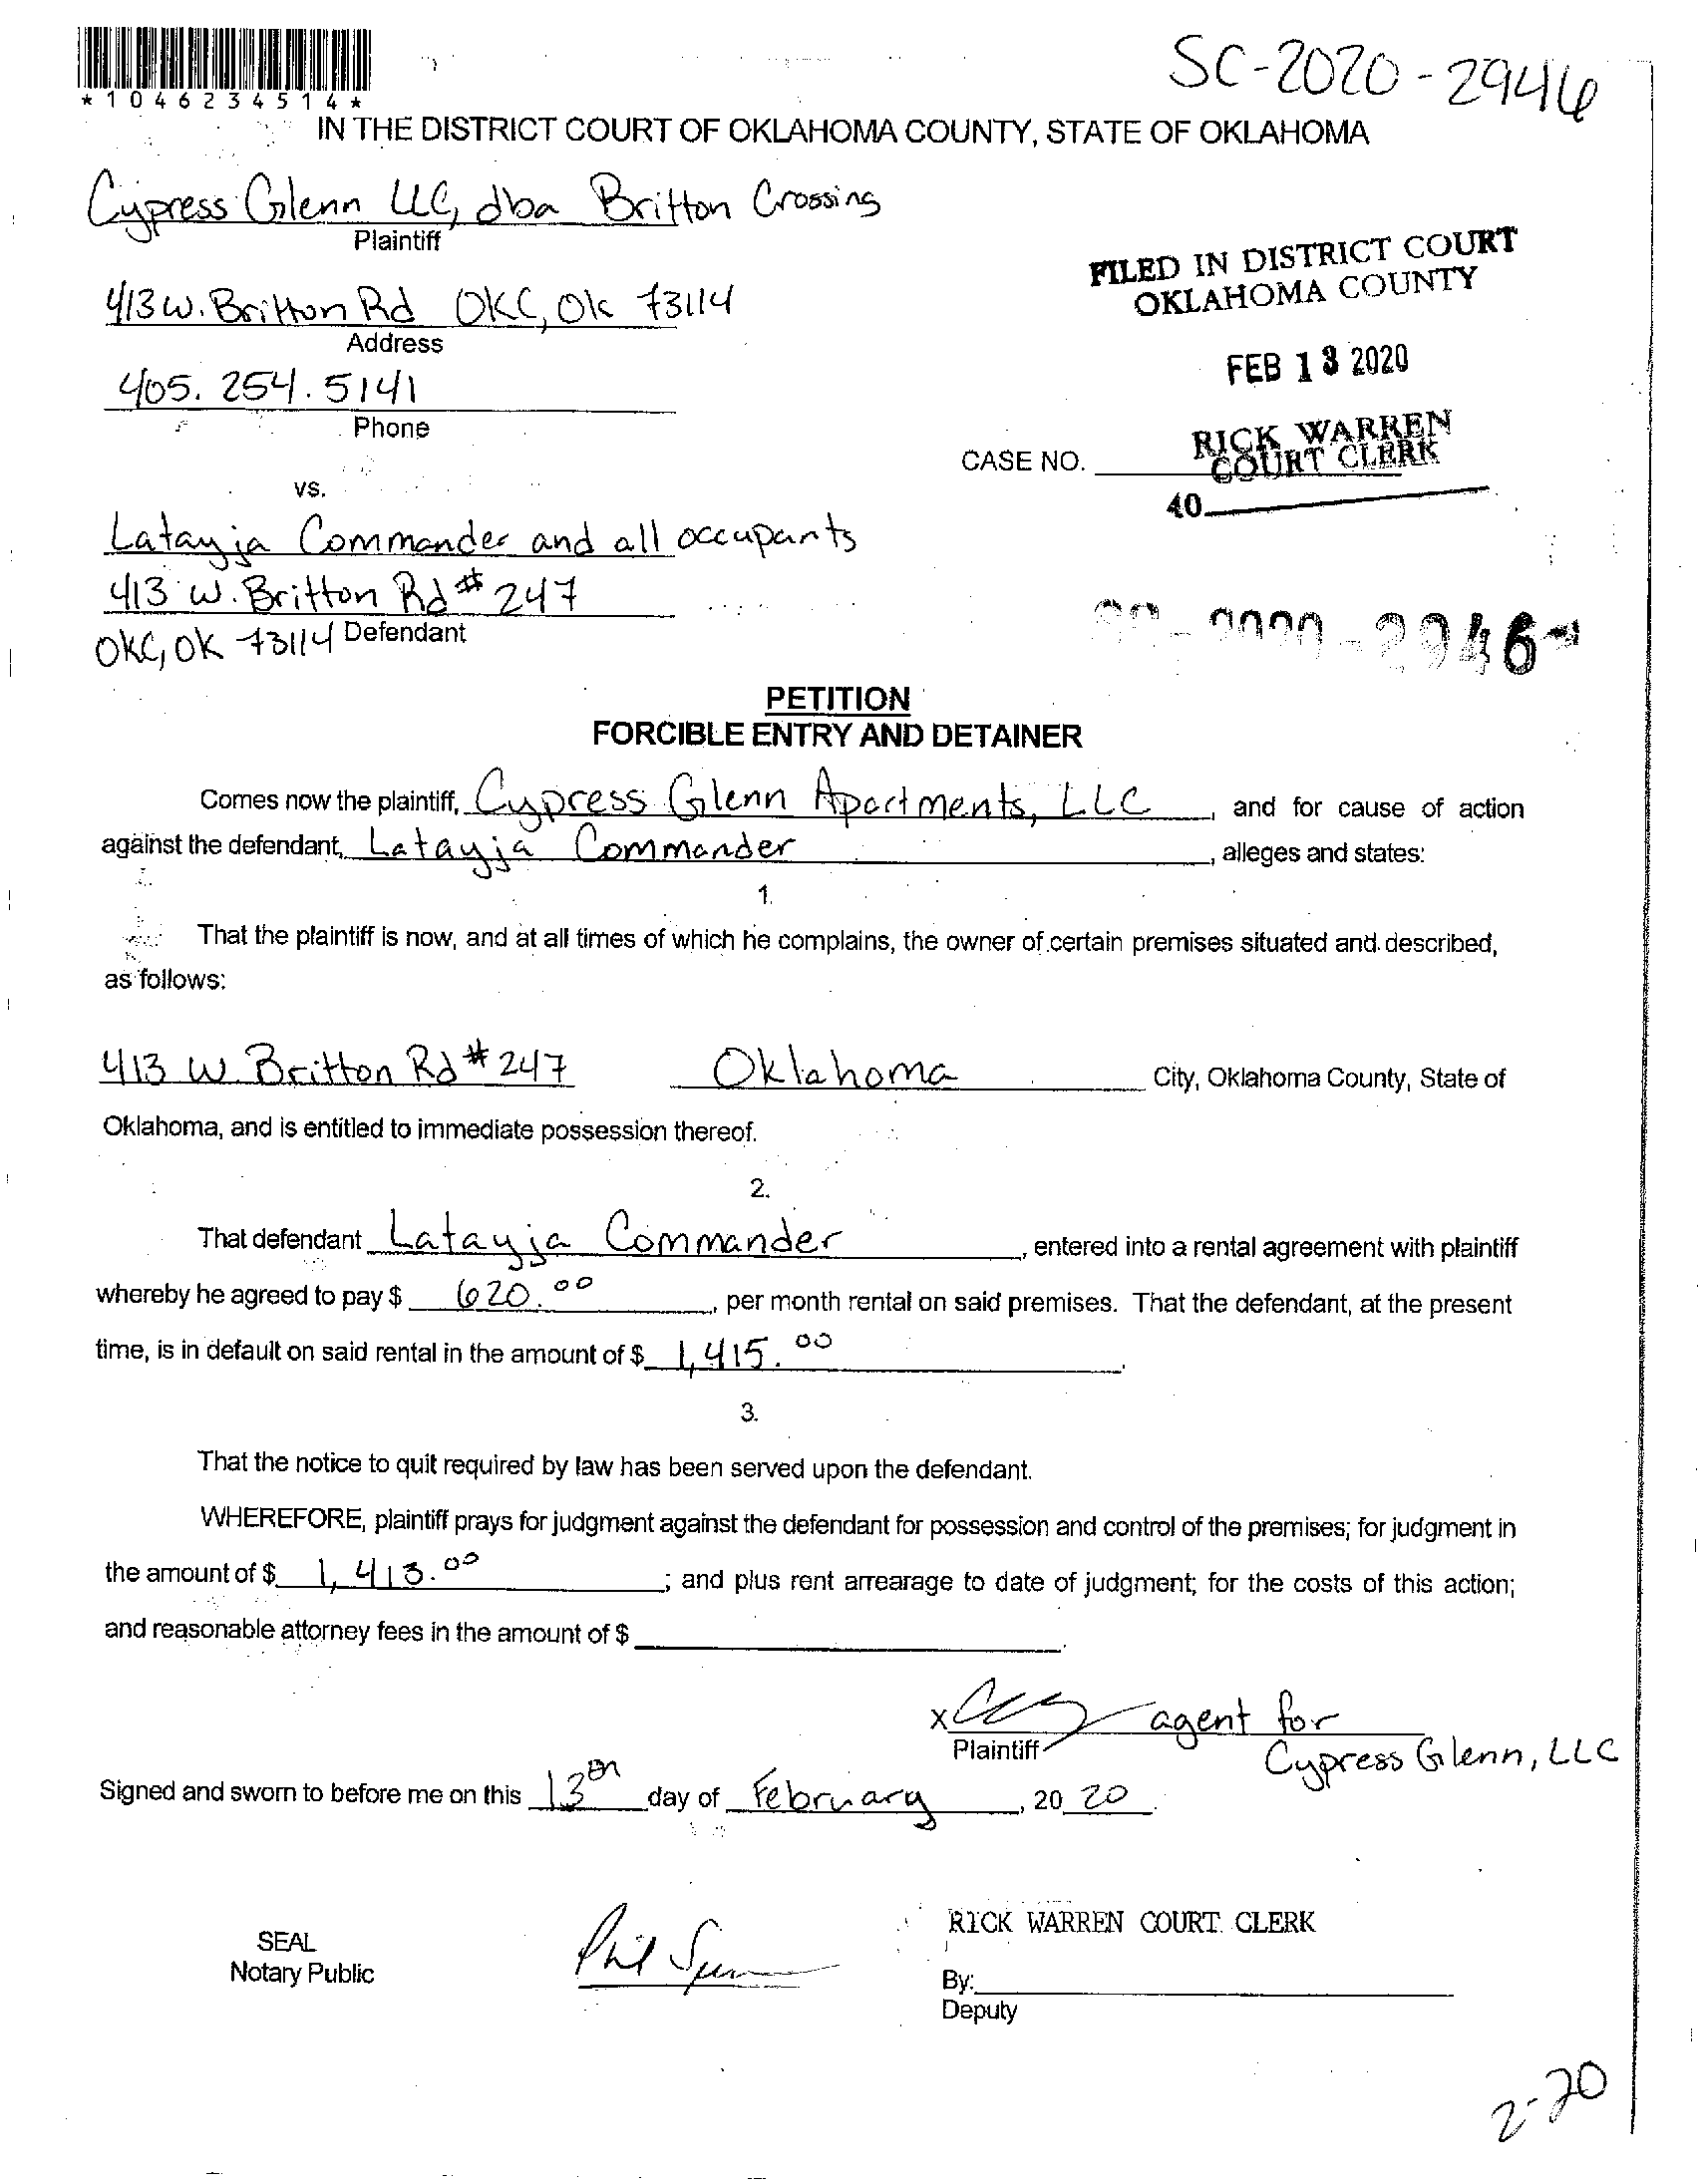 *1046234514*
SC-2020-2946
IN THE DISTRICT COURT OF OKLAHOMA COUNTY, STATE OF OKLAHOMA
Cypress Glenn LLC, dba Britton Crossing
Plaintiff
413 W. Britton Rd OKC, Ok 73114
Address
405. 254. 5141
Phone
FILED IN DISTRICT COURT
OKLAHOMA COUNTY
FEB 13 2020
RICK WARREN
COURT CLERK
CASE NO.
40
vs.
Latayja Commander and all occupants
413 W. Britton Rd # 247
OKC, OK 73114 Defendant
SC-2020-2946
PETITION
FORCIBLE ENTRY AND DETAINER
Comes now the plaintiff, Cypress Glenn Apartments, LLC, and for cause of action
against the defendant, Latayja Commander, alleges and states:
1.
That the plaintiff is now, and at all times of which he complains, the owner of certain premises situated and described,
as follows:
413 W. Britton Rd # 247 Oklahoma City, Oklahoma County, State of
Oklahoma, and is entitled to immediate possession thereof.
2.
That defendant Latayja Commander, entered into a rental agreement with plaintiff
whereby he agreed to pay $ 620.00, per month rental on said premises. That the defendant, at the present
time, is in default on said rental in the amount of $ 1,415.00.
3.
That the notice to quit required by law has been served upon the defendant.
WHEREFORE, plaintiff prays for judgment against the defendant for possession and control of the premises; for judgment in
the amount of $ 1,413.00; and plus rent arrearage to date of judgment; for the costs of this action;
and reasonable attorney fees in the amount of $ .
x agent for
Plaintiff
Cypress Glenn, LLC
Signed and sworn to before me on this 13th day of February, 20 20.
SEAL
Notary Public
Phil
RICK WARREN COURT CLERK
By:
Deputy
2-20